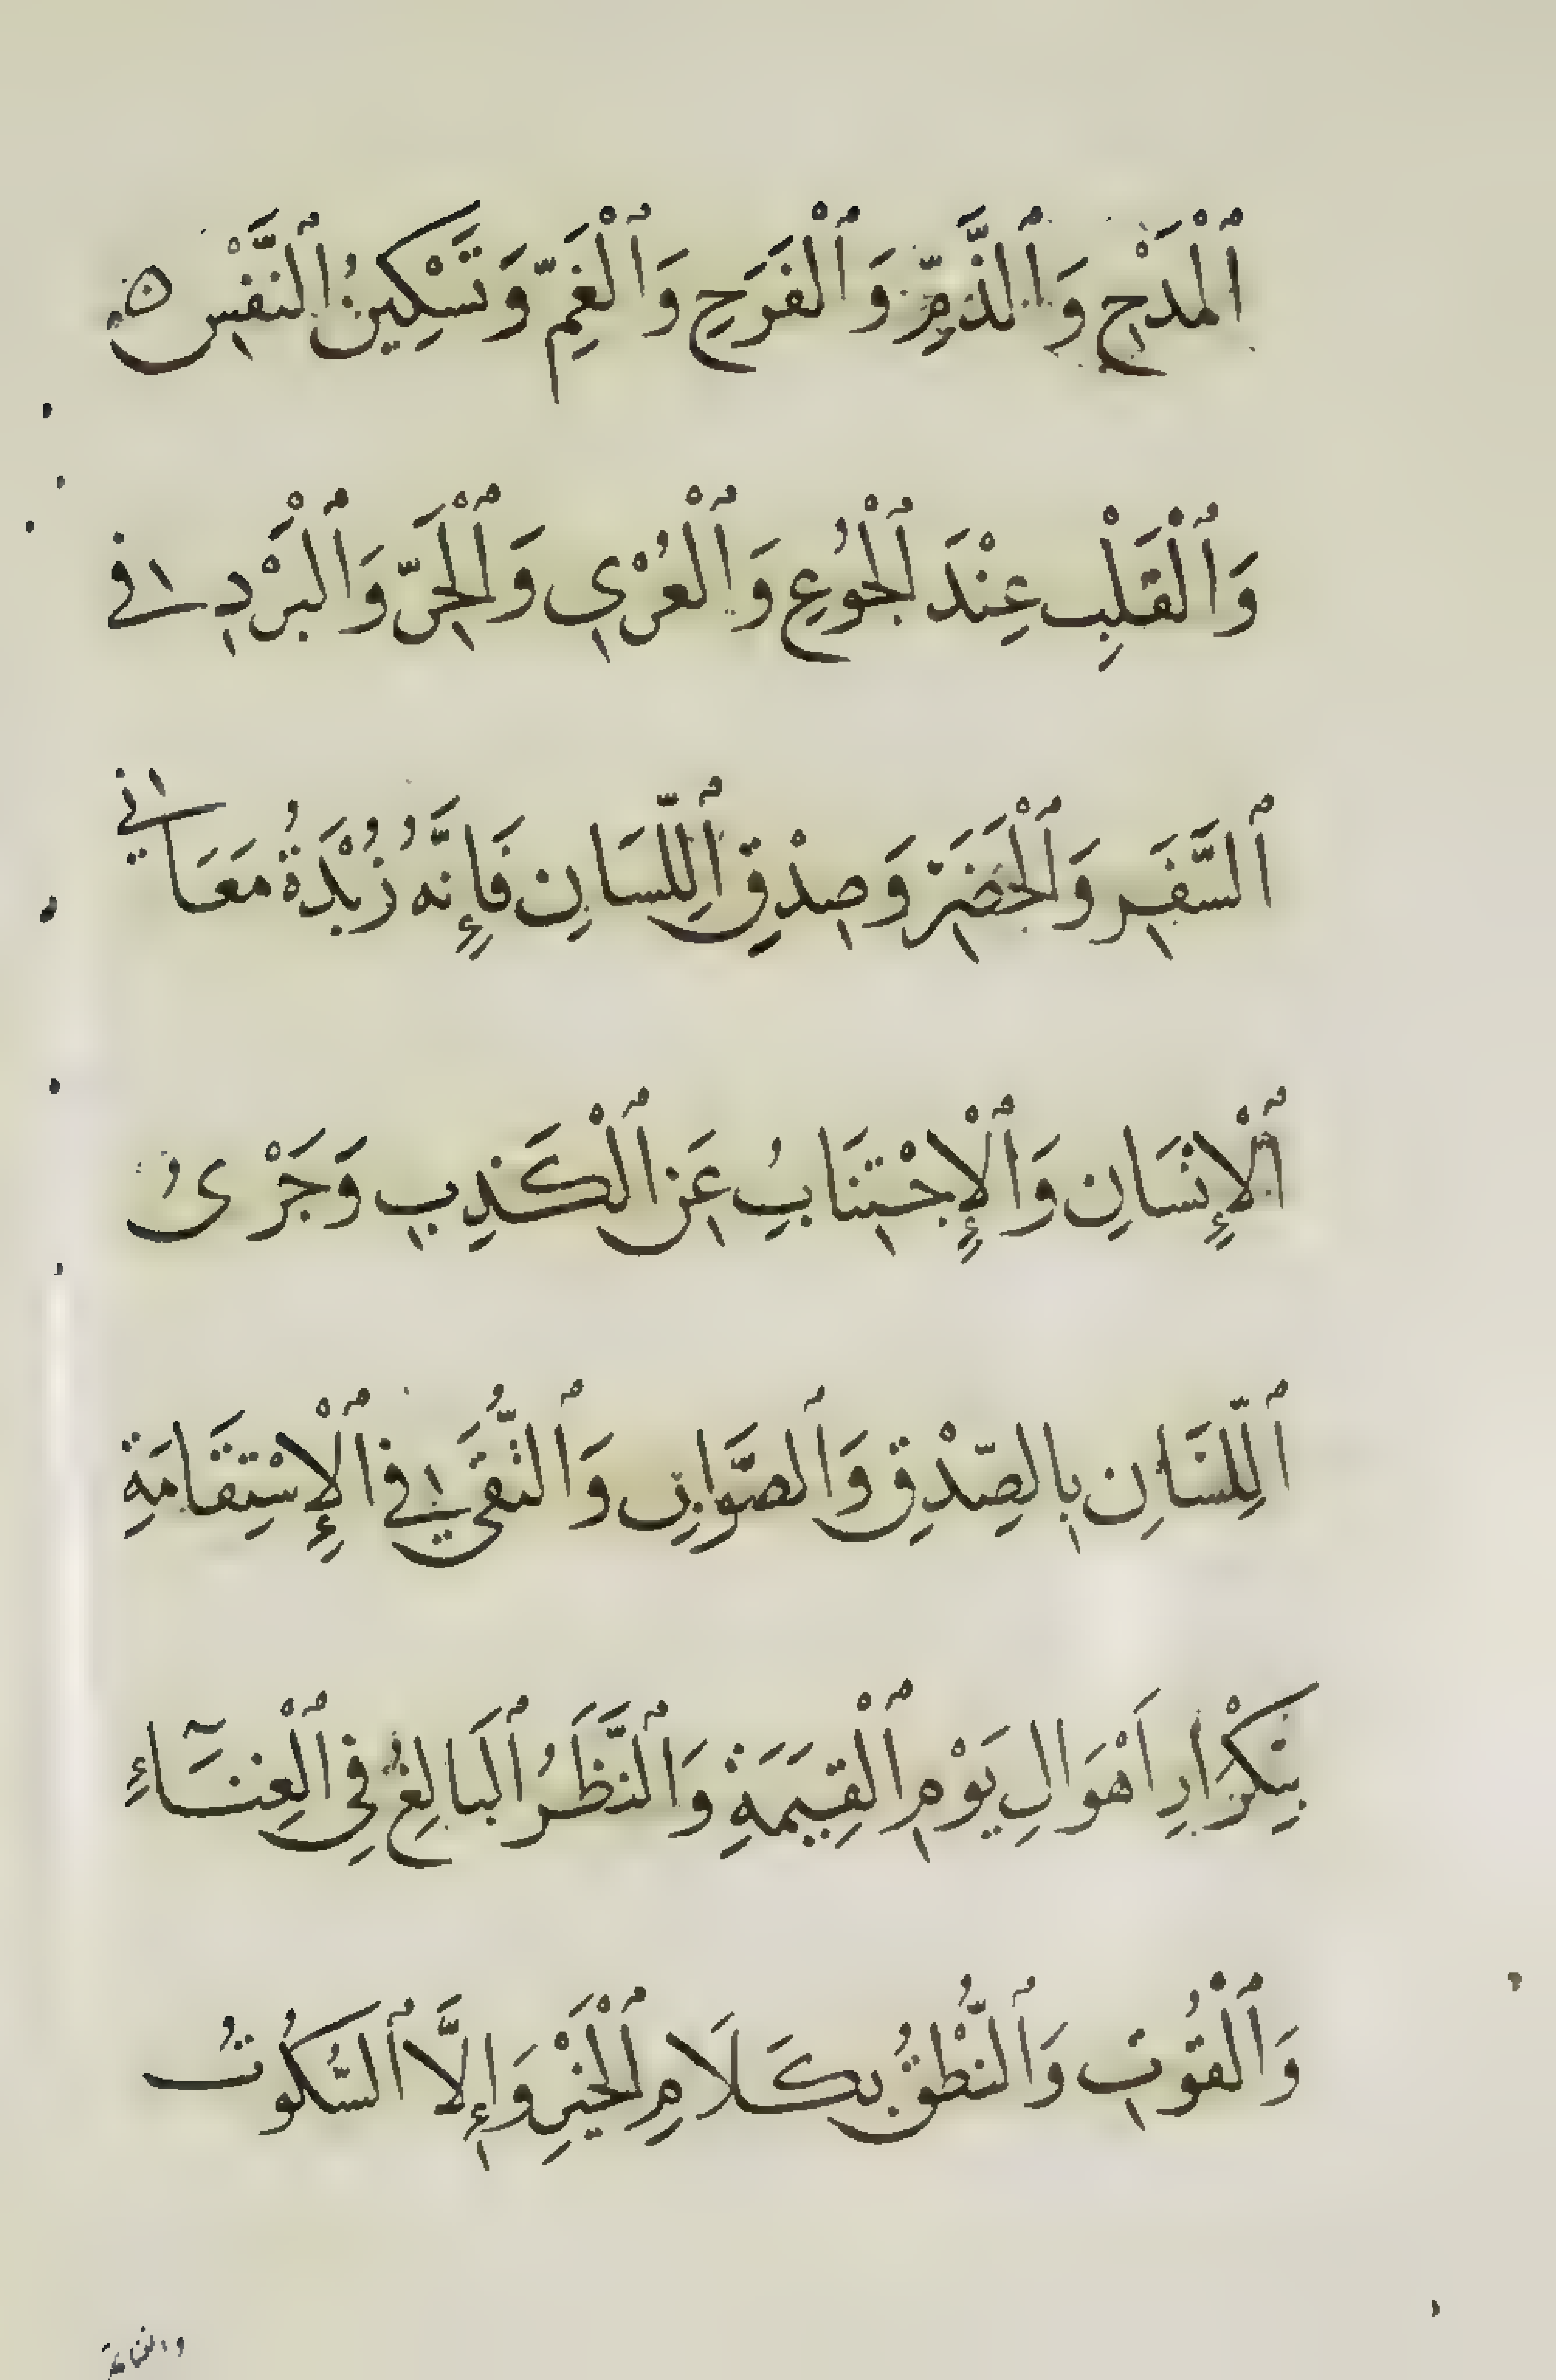 ٱلْمَدْحِ وَٱلذَّمِّ وَٱلْفَرَحِ وَٱلْغَمِّ وَتَسْكِينُ ٱلنَّفْسِ
وَٱلْقَلْبِ عِنْدَ ٱلْجُوعِ وَٱلْعُرْيِ وَٱلْحَرِّ وَٱلْبَرْدِ فِي
ٱلسَّفَرِ وَٱلْحَضَرِ وَصِدْقِ ٱللِّسَانِ فَإِنَّهُ زُبْدَةُ مَعَانِي
ٱلْإِنْسَانِ وَٱلْإِجْتِنَابُ عَنِ ٱلْكَذِبِ وَجَرْىُ
ٱللِّسَانِ بِالصِّدْقِ وَٱلصَّوَابِ وَٱلتُّقَى فِي ٱلْإِسْتِقَامَةِ
بِتَكْرَارِ اَهْوَالِ يَوْمِ ٱلْقِيَمَةِ وَٱلنَّظَرُ ٱلبَالِغُ فِي ٱلْغِنَآءِ
وَٱلْقُوتِ وَٱلنُّطْقُ بِكَلَامِ ٱلْخَيْرِ وَإِلَّا ٱلسُّكُوتُ
والقناعة